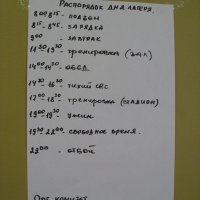 РАСПОРЯДОК ДНЯ ЛАГЕРЯ.
8 00 8 15 - ПОДЪЕМ
8 15 - 8 45 - ЗАРЯДКА
9 00 - ЗАВТРАК
11 30 13 30 - ТРЕНИРОВКА (ЗАЛ)
14 00 - 14 30 - ОБЕД
14 30 - 16 30 - ТИХИЙ ЧАС
17 00 - 18 30 - ТРЕНИРОВКА (СТАДИОН)
19 00 - 19 30 - УЖИН
19 30 22 00 - СВОБОДНОЕ ВРЕМЯ.
23 00 - ОТБОЙ
ОРГ. КОМИТЕТ